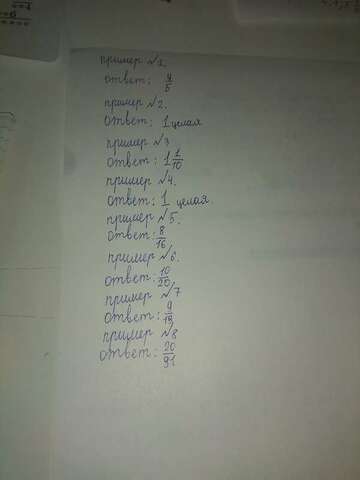 пример №1.
ответ: 4/5
пример №2.
ответ: 1 целая
пример №3
ответ: 1 1/10
пример №4.
ответ: 1 целая.
пример №5.
ответ: 8/16
пример №6.
ответ: 10/20
пример №7
ответ: 9/19
пример №8
ответ: 20/91